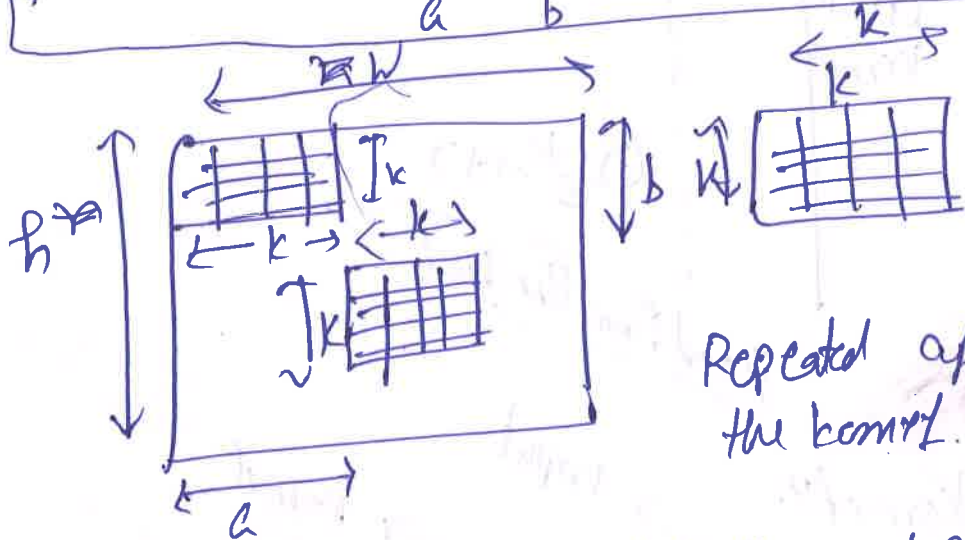 a b
w k
k
h k b k
k k
k
Repeated ap
the kernel.
a